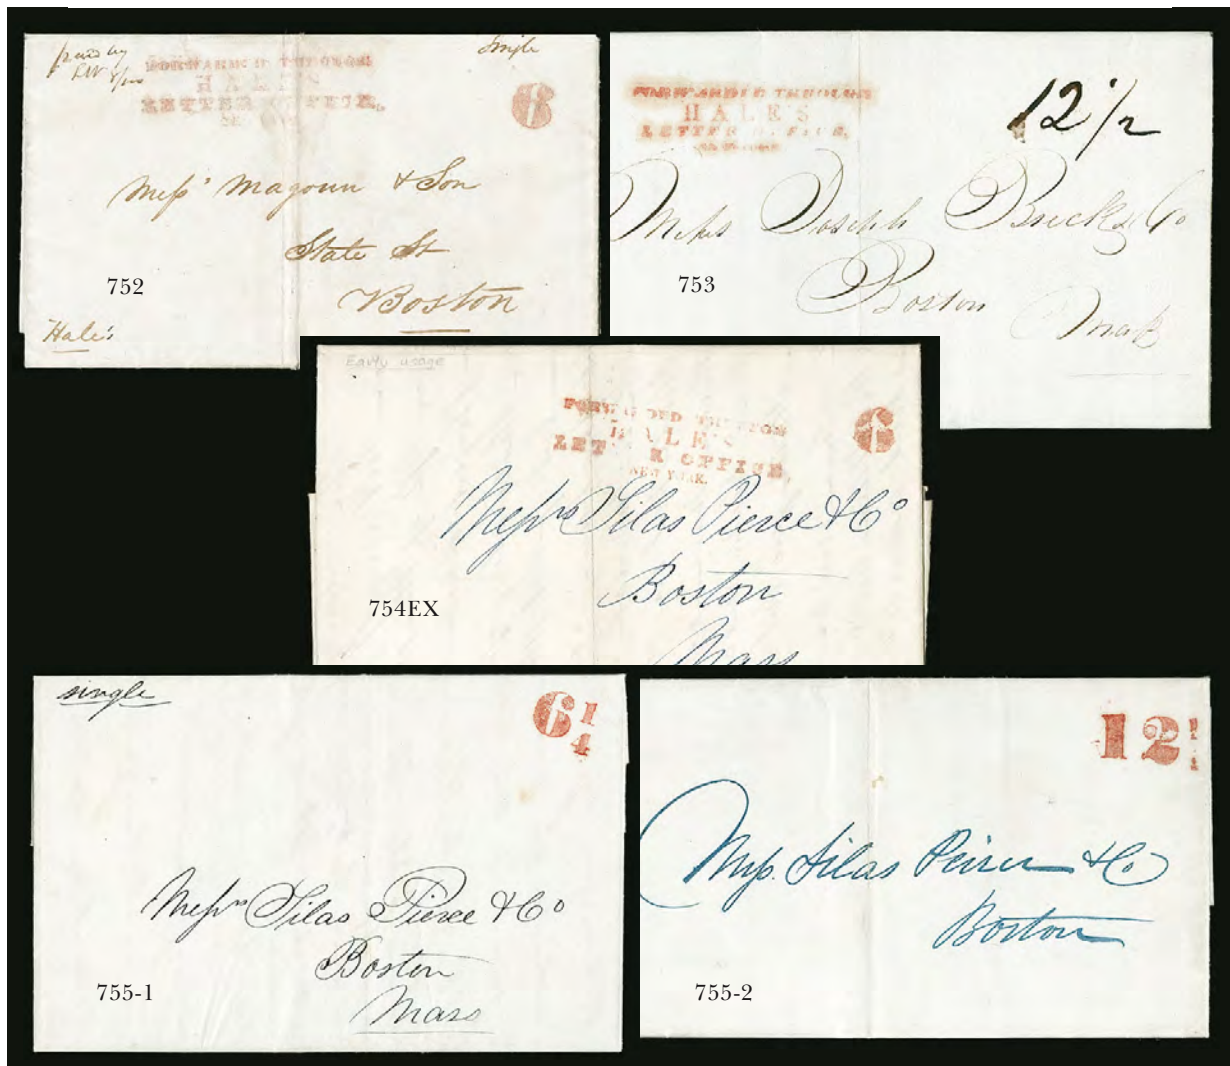 paid by
Single
FORWARDED THROUGH
HALE'S
LETTER OFFICE,
6
Mess Magoun & Son
State St
Boston
752
Hale's
FORWARDED THROUGH
HALE'S
LETTER OFFICE,
12 1/2
Joseph
Boston
753
Early usage
FORWARDED THROUGH
HALE'S
LETTER OFFICE,
NEW YORK.
6
Messrs Silas Pierce & Co
Boston
Mass
754EX
single
6 1/4
Messrs Silas Pierce & Co
Boston
Mass
755-1
12
Mess. Silas Peirce & Co
Boston
755-2